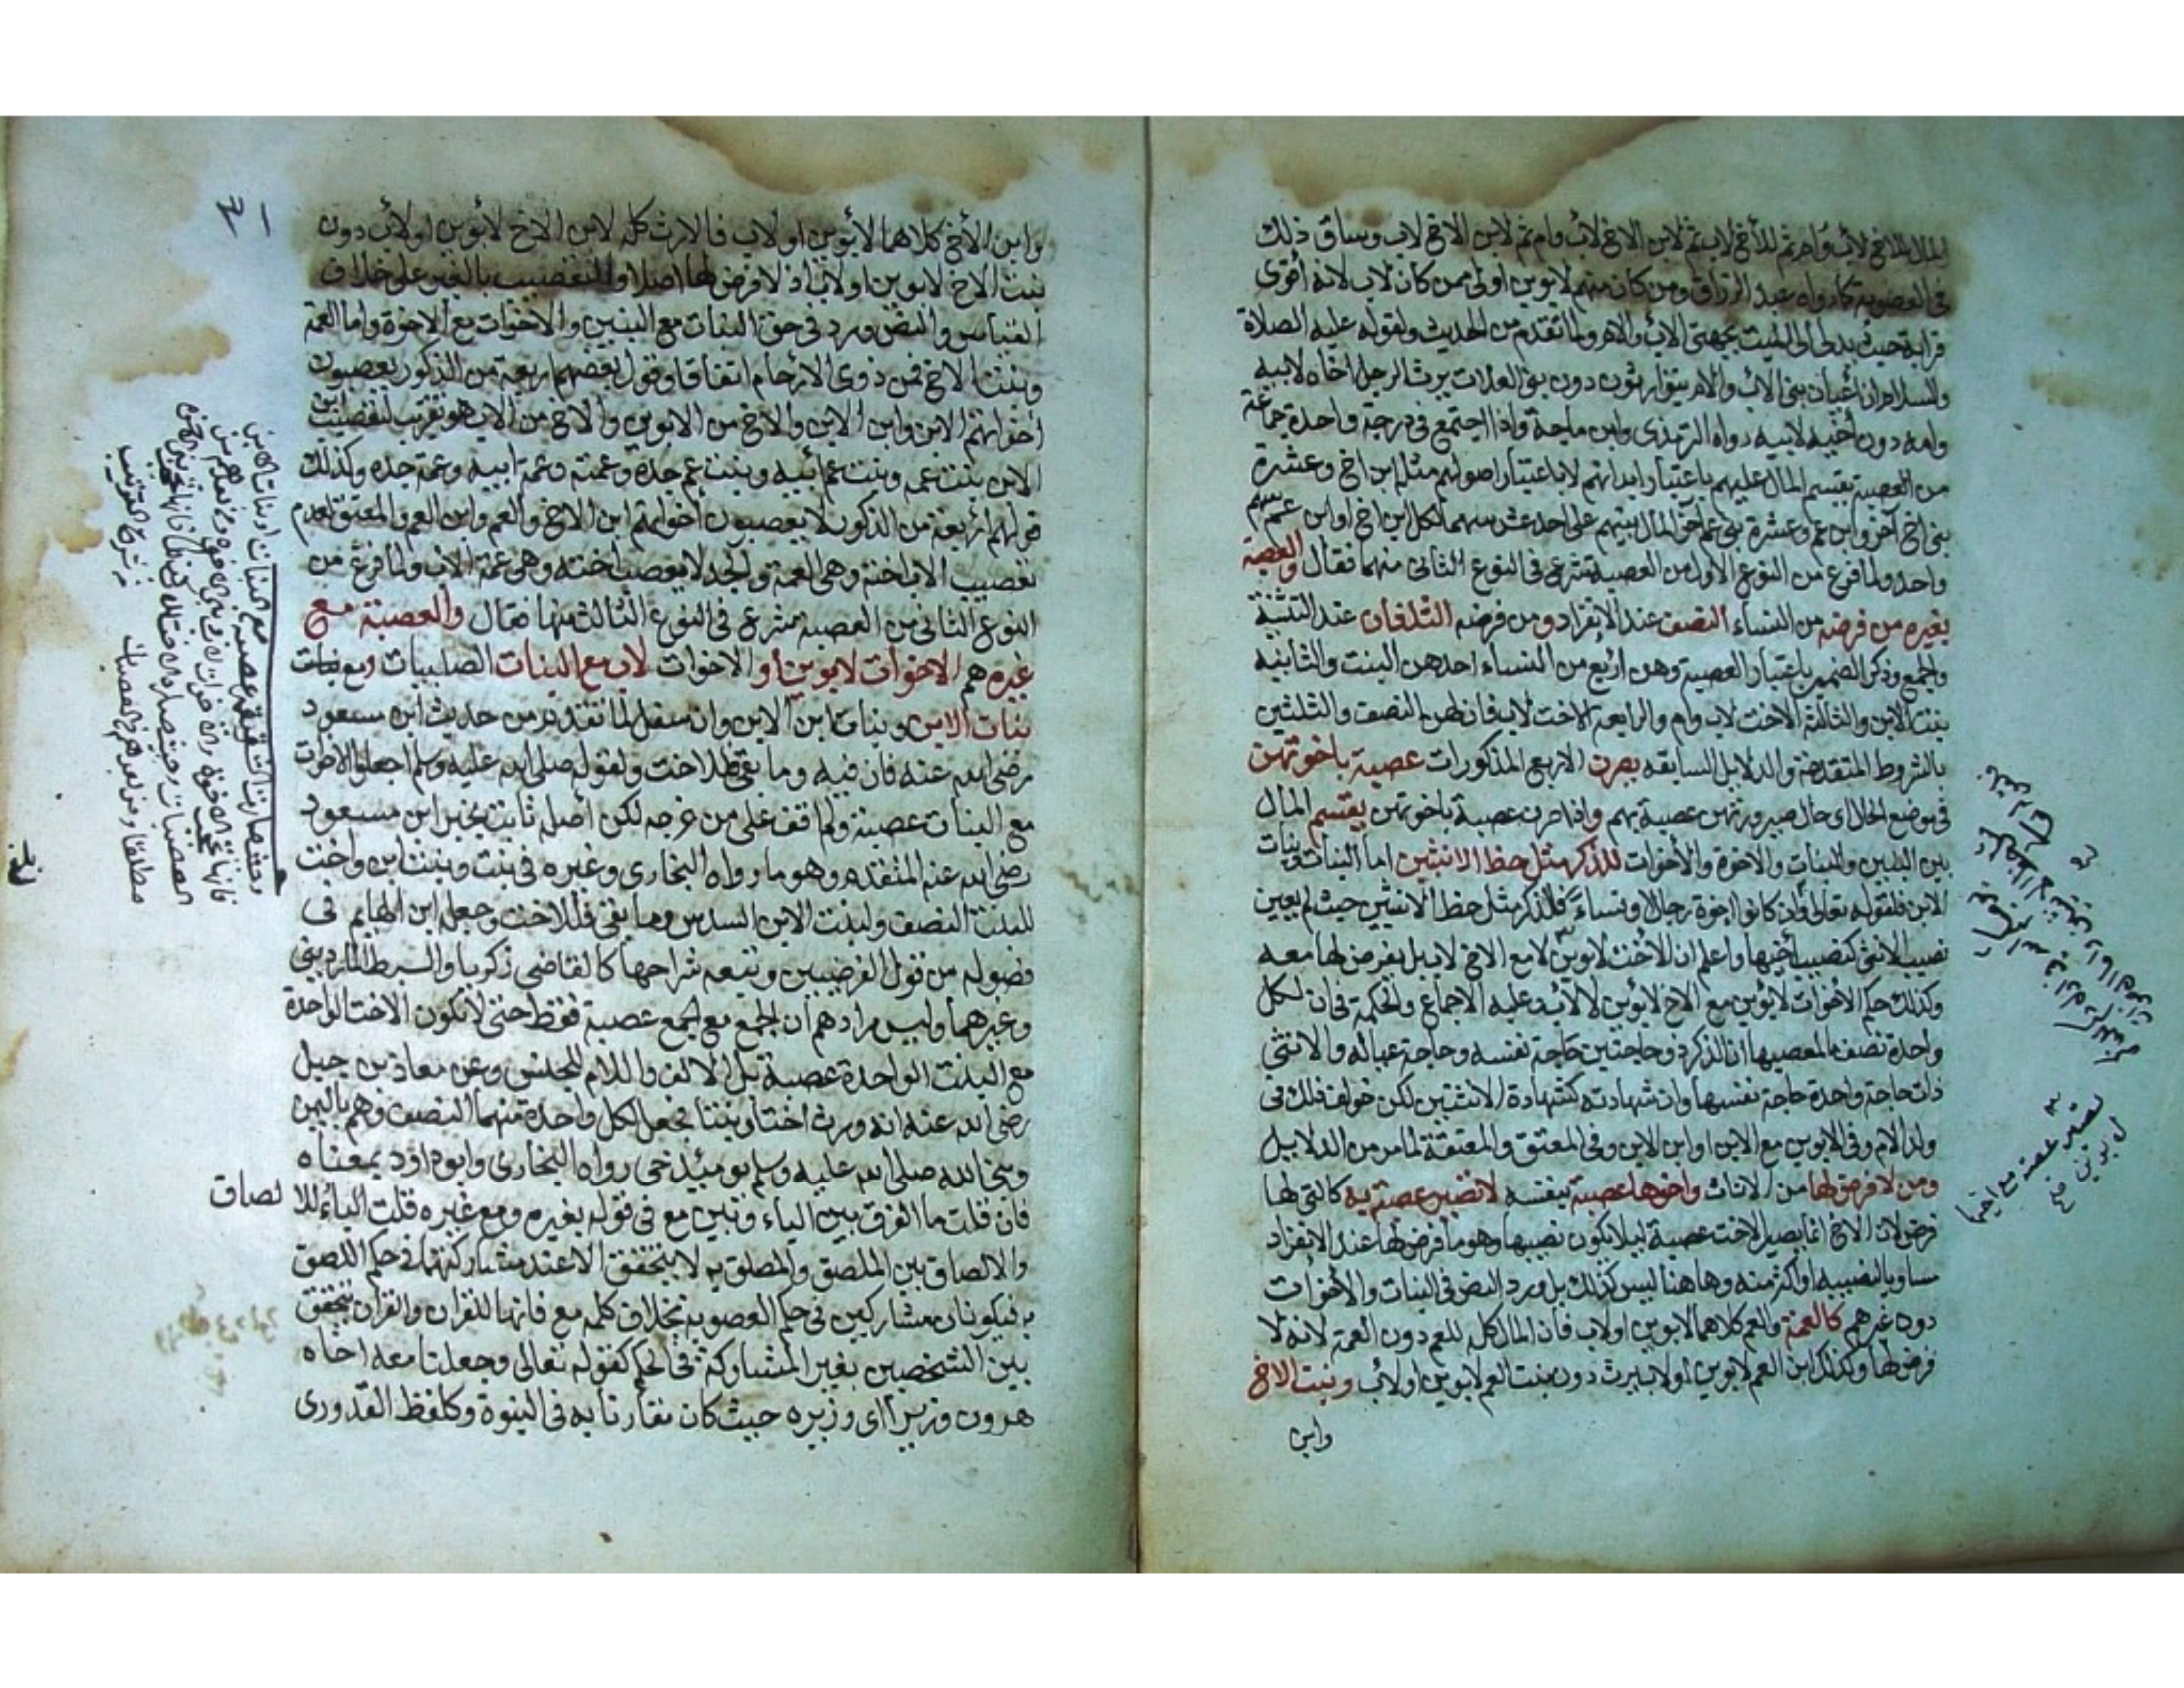 المال للاخ لأب وام ثم للأخ لاب ثم لابن الاخ لأب وام ثم لابن الاخ لاب وساق ذلك
في العصوبة كما رواه عبد الرزاق ومن كان منهم لابوين اولى ممن كان لاب لانه أقوى
قرابة حيث يدلى الى الميت بجهتي الأب والام ولما تقدم من الحديث ولقوله عليه الصلاة
والسلام ان أعيان بني الأب والام يتوارثون دون بني العلات يرث الرجل اخاه لابيه
وامه دون أخيه لابيه رواه الترمذي وابن ماجة واذا اجتمع في درجة واحدة جماعة
من العصبة يقسم المال عليهم باعتبار ابدانهم لا باعتبار اصولهم مثل ابن اخ وعشرة
بني اخ آخر وابن عم وعشرة بني عم آخر المال بينهم على احد عشر سهما لكل ابن اخ او ابن عم سهم
واحد ولما فرغ من النوع الاول من العصبة شرع في النوع الثاني منهما فقال والعصبة
بغيره من فرضه من النساء النصف عند الانفراد ومن فرضه الثلثان عند التثنية
والجمع وذكر الضمير باعتبار العصبة وهن اربع من النساء احدهن البنت والثانية
بنت الابن والثالثة الاخت لاب وام والرابعة الاخت لاب فان لهن النصف والثلثين
بالشروط المتقدمة والدلايل السابقه يصرن الاربع المذكورات عصبة باخوتهن
في موضع الحال اى حال صيرورتهن عصبة بهم واذا صرن عصبة باخوتهن يقتسم المال
بين البنين والبنات والاخوة والأخوات للذكر مثل حظ الانثيين اما البنات وبنات
الابن فلقوله تعالى وأن كانوا اخوة رجالا ونساء فللذكر مثل حظ الانثيين حيث لم يعين
نصيب الانثى كنصيب أخيها واعلم ان الأخت لابوين لا مع الاخ لاب بل يفرض لها معه
وكذلك حكم الأخوات لابوين مع الاخ لابوين لا لأب وعليه الاجماع والحكمة في ان لكل
واحدة نصف ما لمعصبها ان الذكر ذو حاجتين حاجة نفسه وحاجة عياله والانثى
ذات حاجة واحدة حاجة نفسها وان شهادته كشهادة الانثيين لكن خولف ذلك في
ولد الام وفي الابوين مع الابن او ابن الابن وفي المعتق والمعتقة لما مر من الدلايل
ومن لا فرض لها من الاناث واخوها عصبة بنفسه لا تصير عصبة به كالتي لها
فرض لان الاخ انما يصير الاخت عصبة ليلا يكون نصيبها وهو ما فرض لها عند الانفراد
مساويا لنصيبه او اكثر منه وهاهنا ليس كذلك بل ورد النص في البنات والأخوات
دون غيرهم كالعمة والعم كلاهما لابوين اولاب فان المال كله للعم دون العمة لانه لا
فرض لها وكذلك ابن العم لابوين أو لاب يرث دون بنت العم لابوين اولأب وبنت الاخ
وابن
تصير عصبة مع اخيها
لابوين
٣١
وابن الأخ كلاهما لأبوين او لاب فالارث كله لابن الاخ لأبوين او لأب دون
بنت الاخ لابوين اولاب اذ لا فرض لها اصلا والتعصيب بالغير على خلاف
القياس والنص ورد في حق البنات مع البنين والاخوات مع الاخوة واما العمة
وبنت الاخ فمن ذوى الارحام اتفاقا وقول بعضهم اربعة من الذكور يعصبون
أخواتهم الابن وابن الابن والاخ من الابوين والاخ من الاب هو تقريب لتعصيب ابن
الابن بنت عمه وبنت عم أبيه وبنت عم جده وعمته وعمة ابيه وعمة جده وكذلك
قولهم أربعة من الذكور لا يعصبون أخواتهم ابن الاخ والعم وابن العم والمعتق لعدم
تعصيب الاب اخته وهى العمة والجد لا يعصب اخته وهى عمة الأب ولما فرغ من
النوع الثاني من العصبة شرع في النوع الثالث منها فقال والعصبة مع
غيره هم الاخوات لابوين أو الاخوات لاب مع البنات الصلبيات ومع بنات
بنات الابن وبنات ابن الابن وان سفل لما تقدم من حديث ابن مسعود
رضى الله عنه فان فيه وما بقي فللاخت ولقوله صلى الله عليه وسلم اجعلوا الاخوات
مع البنات عصبة ولم اقف على من خرجه لكن اصله ثابت بخبر ابن مسعود
رضى الله عنه المتقدم وهو ما رواه البخارى وغيره في بنت وبنت ابن واخت
للبنت النصف ولبنت الابن السدس وما بقى فللاخت وجعل ابن الهايم في
فصوله من قول الفرضيين وتبعه شراحها كالقاضي زكريا والسبط المارديني
وغيرهما وليس مرادهم ان الجمع مع الجمع عصبة فقط حتى لا تكون الاخت الواحدة
مع البنت الواحدة عصبة بل الالف واللام للجنس وعن معاذ بن جبل
رضى الله عنه انه ورث اختا وبنتا بجعل لكل واحدة منهما النصف وهم باليمن
ونبي الله صلى الله عليه وسلم يومئذ حي رواه البخارى وابو داود بمعناه
فان قلت ما الفرق بين الباء وبين مع في قوله بغيره ومع غيره قلت الباء للا لصاق
والالصاق بين الملصق والملصق به لا يتحقق الا عند مشاركتهما في حكم اللصق
به فيكونان مشاركين في حكم العصوبة بخلاف كلمة مع فانها للقران والقران يتحقق
بين الشخصين بغير المشاركة في الحكم كقوله تعالى وجعلنا معه اخاه
هرون وزيرا اى وزيره حيث كان مقارنا به في النبوة وكلفظ القدورى
وحيث صارت الشقيقة عصبة مع البنات او بنات الابن
بلغ